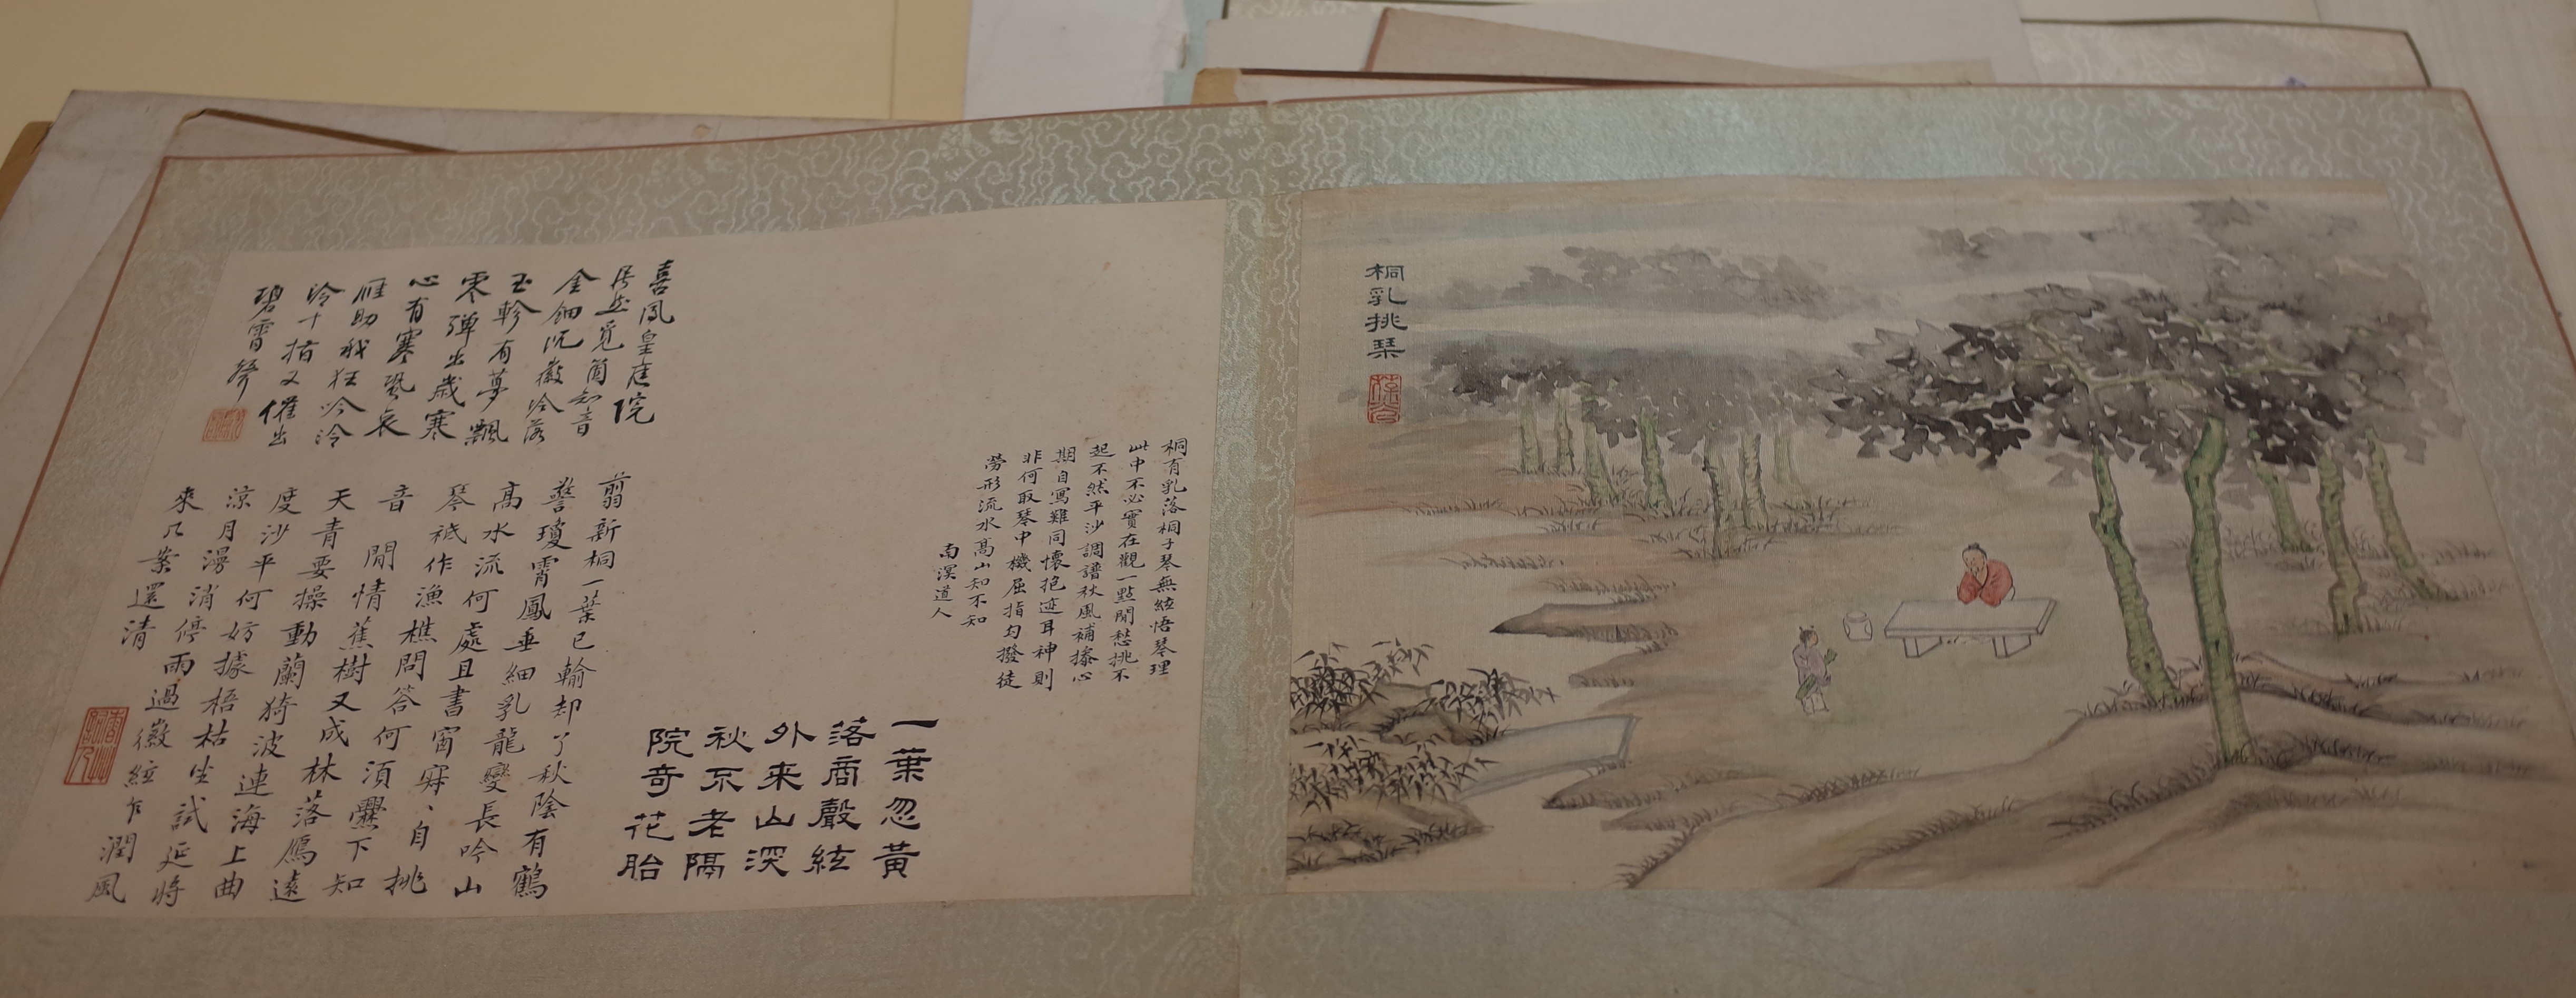 桐乳挑琹
桐有乳落桐子琴無絃悟琴理
此中不必實在觀一點閒愁挑不
起不然平沙調譜秋風補搽心
期自寫難同懷抱迹耳神則
非何取琴中機屈指勻撥徒
勞形流水高山知不知
南溟道人
一葉忽黃
落商聲絃
外来山深
秋不老隔
院奇花胎
喜鳳皇庭院
居然覓箇知音
金鈿沉徽冷落
玉軫有夢飄
零彈出歲寒
心有寒蛩哀
雁助我狂吟泠
泠十指又催出
碧霄聲
翦新桐一葉已輸却了秋陰有鶴
警瓊霄鳳垂細乳龍變長吟山
高水流何處且書窗寐、自挑
琴祇作漁樵問答何須爨下知
音閒情蕉樹又成林落鴈遠
天青要操動蘭猗波連海上曲
度沙平何妨據梧枯坐試延將
涼月漫消停雨過徽絃乍潤風
來几案還清